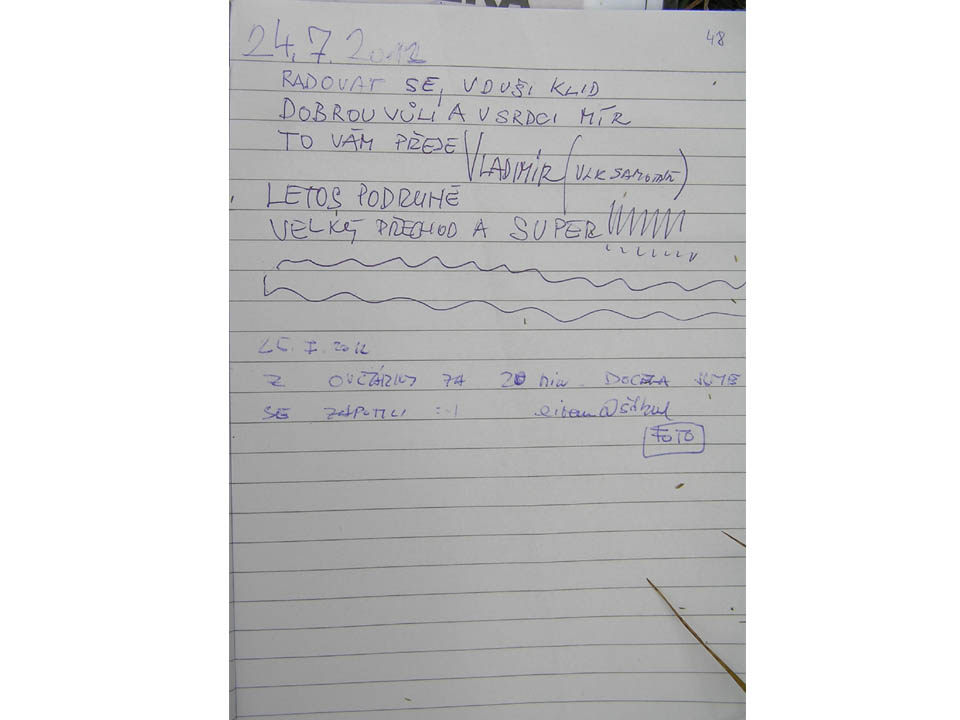 48
24.7.2012
RADOVAT SE, V DUŠI KLID
DOBROU VŮLI A V SRDCI MÍR
TO VÁM PŘEJE VLADIMÍR (VLK SAMOTÁŘ)
LETOS PODRUHÉ
VELKÝ PŘECHOD A SUPER
25. 2012
Z OVČÁRNY ZA 20 min. DOCELA JSME
SE ZAPOTILI :-)
FOTO